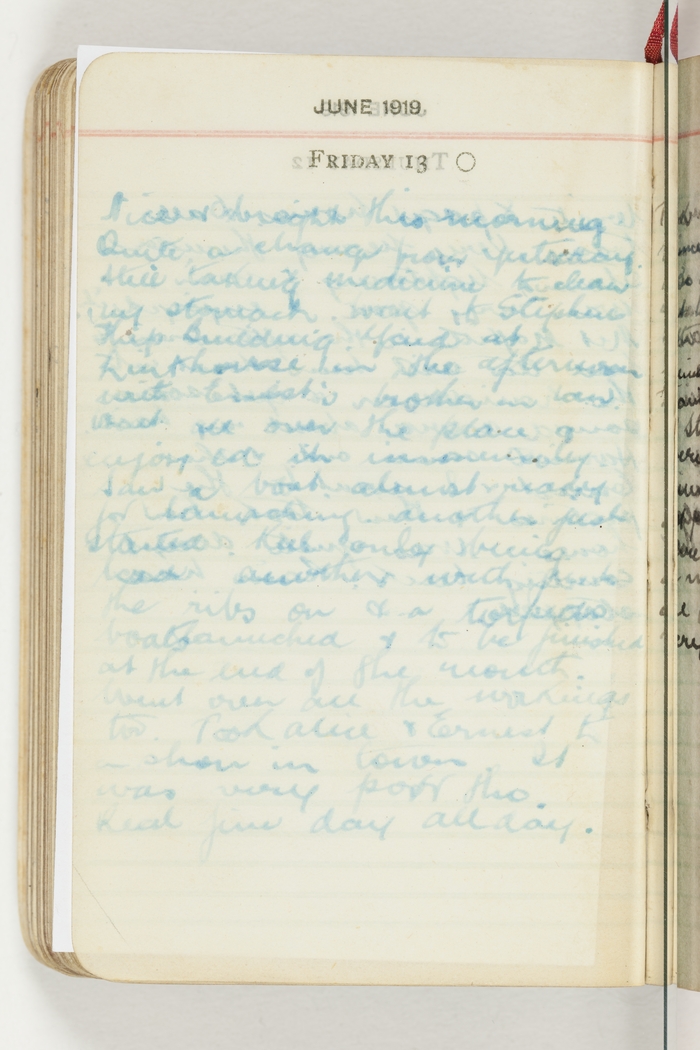 JUNE 1919
FRIDAY 13
Nice & bright this morning
Quite a change from yesterday
still taking medicine to clean
my stomach. went to Stephen
Ship Building Yard at
Linthouse in the afternoon
with Ernest's brother in law.
Went all over the place &
enjoyed it immensely
Saw a boat almost ready
for launching another just
started Keel only being
laid another with just
the ribs on & a torpedo
boat launched & to be finished
at the end of the month.
Went over all the workings
too. Took Alice & Ernest to
a show in town. It
was very poor tho.
Real fine day all day.